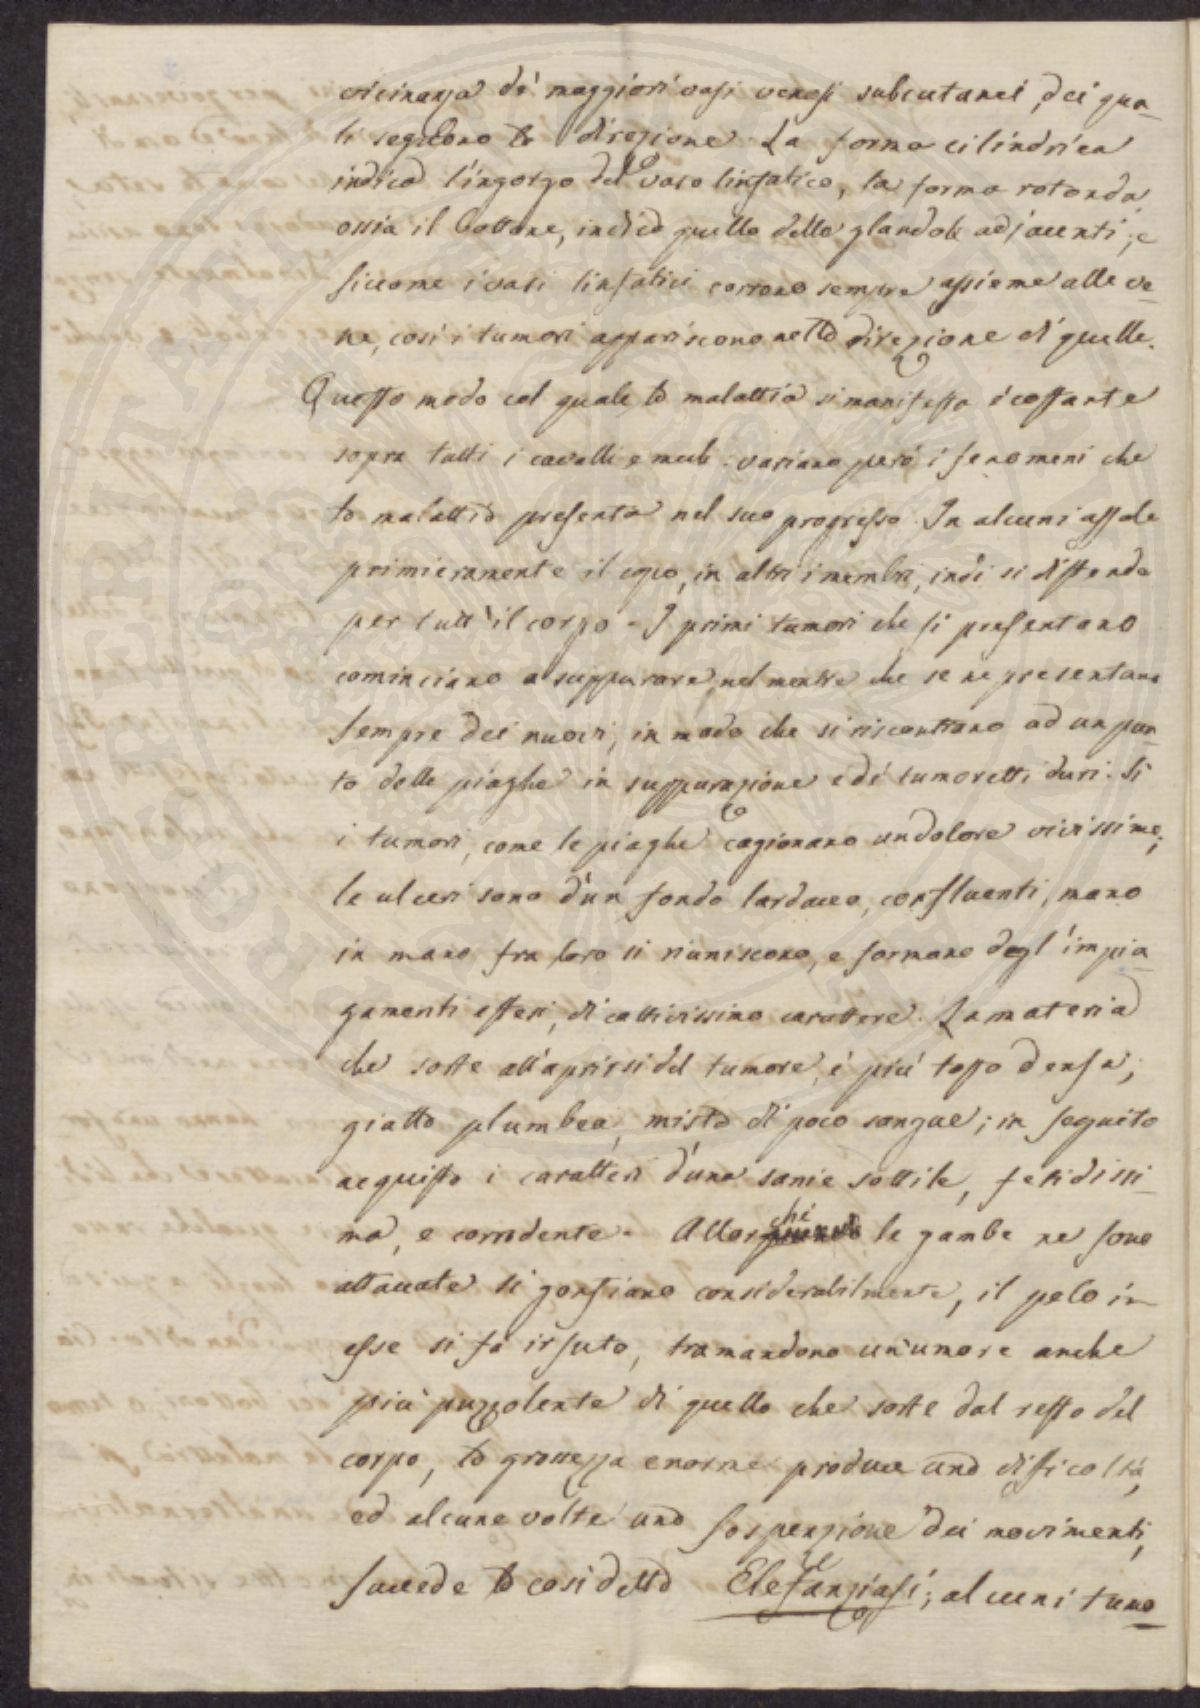 vicinanza de' maggiori vasi venosi subcutanei, dei qua-
li seguono la direzione. La forma cilindrica
indica l'ingorgo del vaso linfatico, la forma rotonda
ossia il bottone, indica quello delle glandole adjacenti; e
siccome i vasi linfatici corrono sempre assieme alle ve-
ne, così i tumori appariscono nella direzione di quelle.
Questo modo col quale la malattia si manifesta è costante
sopra tutti i cavalli e muli: variano però i fenomeni che
la malattia presenta nel suo progresso. In alcuni assale
primieramente il capo, in altri i membri, indi si diffonde
per tutt'il corpo. I primi tumori che si presentano
cominciano a suppurare, nel mentre che se ne presentano
sempre dei nuovi, in modo che si riscontrano ad un pun-
to delle piaghe in suppurazione e di tumoretti duri. Si
i tumori, come le piaghe cagionano un dolore vivissimo;
le ulceri sono d'un fondo lardaceo, confluenti, mano
in mano fra loro si riuniscono, e formano degl'impia-
gamenti esteri, di cattivissimo carattere. La materia
che sorte all'aprirsi del tumore, è più tosto densa,
gialla plumbea, mista di poco sangue; in seguito
acquista i caratteri d'una sanie sottile, fetidissi-
ma, e corrodente. Allor
chè
le gambe ne sono
attaccate si gonfiano considerabilmente, il pelo in
esse si fa irsuto, tramandono un'umore anche
più puzzolente di quello che sorte dal resto del
corpo, la grossezza enorme produce una difficoltà,
ed alcune volte una sospenzione dei movimenti,
succede la così detta Elefanziasi; alcuni tumo-